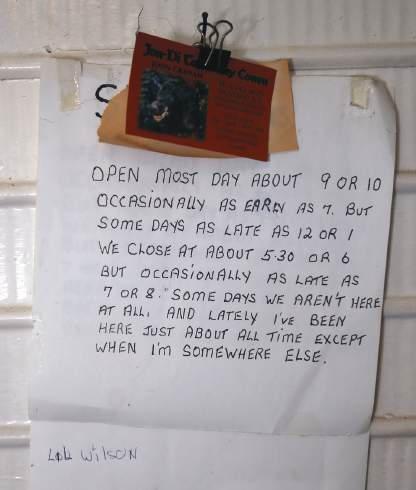 Jon-Di Co
JOHN GRAHAM
S
OPEN MOST DAY ABOUT 9 OR 10
OCCASIONALLY AS EARLY AS 7. BUT
SOME DAYS AS LATE AS 12 OR 1
WE CLOSE AT ABOUT 5.30 OR 6
BUT OCCASIONALLY AS LATE AS
7 OR 8. SOME DAYS WE AREN'T HERE
AT ALL, AND LATELY I'VE BEEN
HERE JUST ABOUT ALL TIME EXCEPT
WHEN I'M SOMEWHERE ELSE.
WilsoN